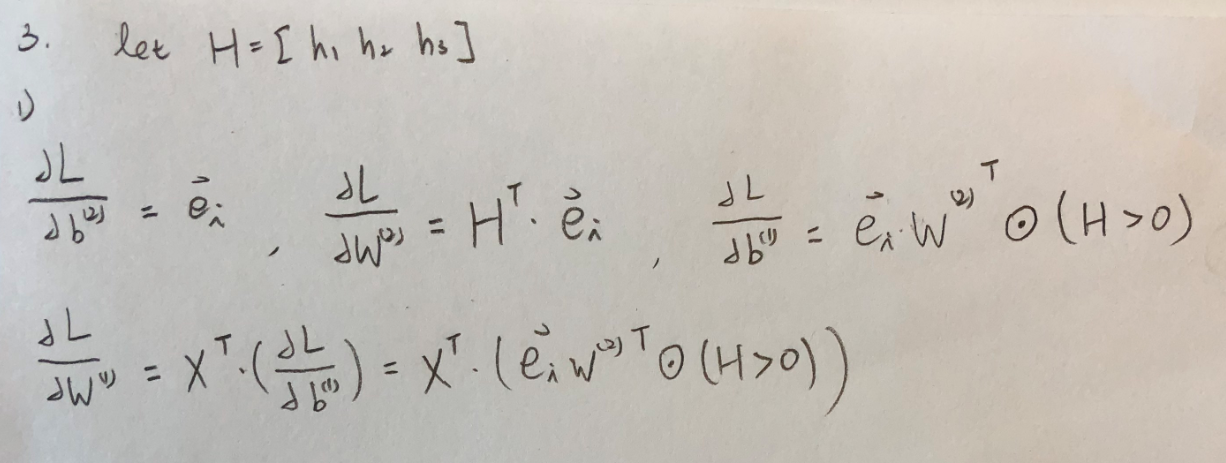 3. let H = [ h₁ h₂ h₃ ]
1)
∂L/∂b⁽²⁾ = e⃗ᵢ , ∂L/∂W⁽²⁾ = Hᵀ · e⃗ᵢ , ∂L/∂b⁽¹⁾ = e⃗ᵢ · W⁽²⁾ᵀ ⊙ (H > 0)
∂L/∂W⁽¹⁾ = Xᵀ · (∂L/∂b⁽¹⁾) = Xᵀ · (e⃗ᵢ W⁽²⁾ᵀ ⊙ (H > 0))